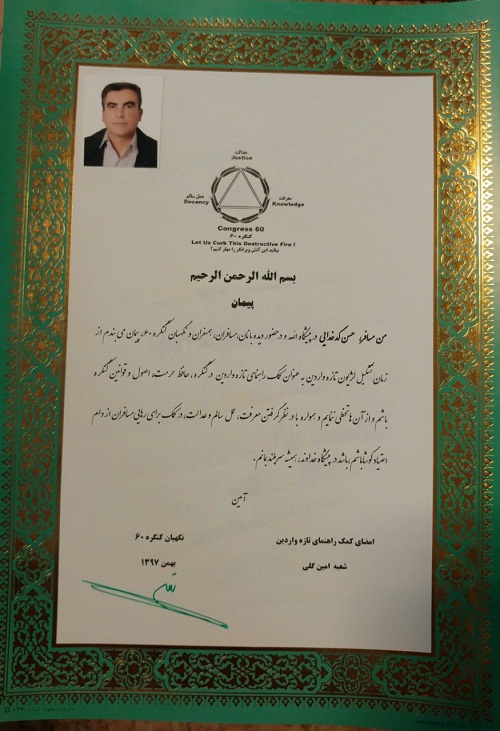 عدالت
Justice
عمل سالم
Decency
معرفت
Knowledge
Congress 60
کنگره ۶۰
Let Us Curb This Destructive Fire !
بیائید این آتش ویرانگر را مهار کنیم!
بسم الله الرحمن الرحیم
پیمان
من مسافر، حسن کدخدایی در پیشگاه الله و در حضور دیده بانان، مسافران، همسفران و نگهبان کنگره ۶۰، پیمان می بندم از
زمان تشکیل لژیون تازه واردین به عنوان کمک راهنمای تازه واردین در کنگره، حافظ حرمت، اصول و قوانین کنگره
باشم و از آن ها تخطی ننمایم و همواره با در نظر گرفتن معرفت، عمل سالم و عدالت، در کمک برای رهایی مسافران از دام
اعتیاد کوشا باشم، باشد در پیشگاه خداوند، همیشه سربلند بمانم.
آمین
امضای کمک راهنمای تازه واردین
نگهبان کنگره ۶۰
شعبه امین گلی
بهمن ۱۳۹۷